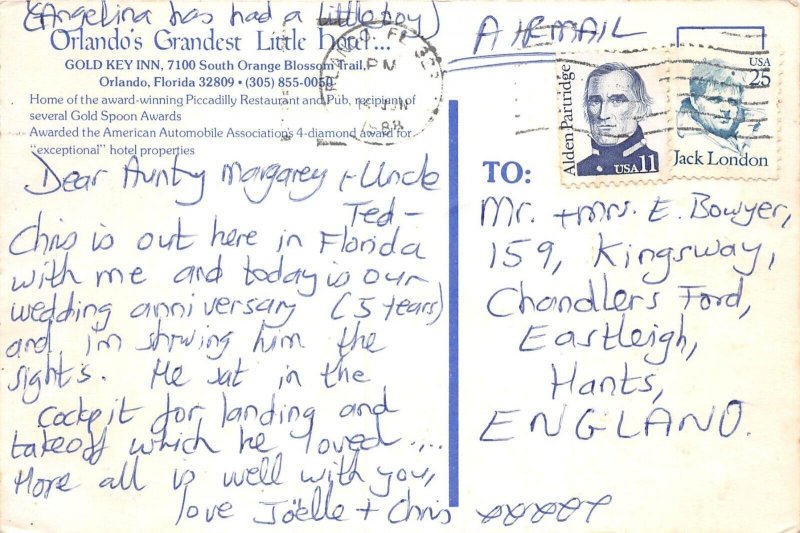 (Angelina has had a little boy)
Orlando's Grandest Little Hotel...
GOLD KEY INN, 7100 South Orange Blossom Trail,
Orlando, Florida 32809 • (305) 855-0050
Home of the award-winning Piccadilly Restaurant and Pub, recipient of
several Gold Spoon Awards
Awarded the American Automobile Association's 4-diamond award for
"exceptional" hotel properties
Dear Aunty Margarey + Uncle
Ted -
Chris is out here in Florida
with me and today is our
wedding anniversary (5 years)
and i'm showing him the
sights. He sat in the
cockpit for landing and
takeoff which he loved....
Hope all is well with you,
love Joëlle + Chris xxxxxx
AIRMAIL
ORLANDO, FL 328
PM
JUN
1988
Alden Partridge
USA 11
USA
25
Jack London
TO:
Mr. + Mrs. E. Bowyer,
159, Kingsway,
Chandlers Ford,
Eastleigh,
Hants,
ENGLAND.